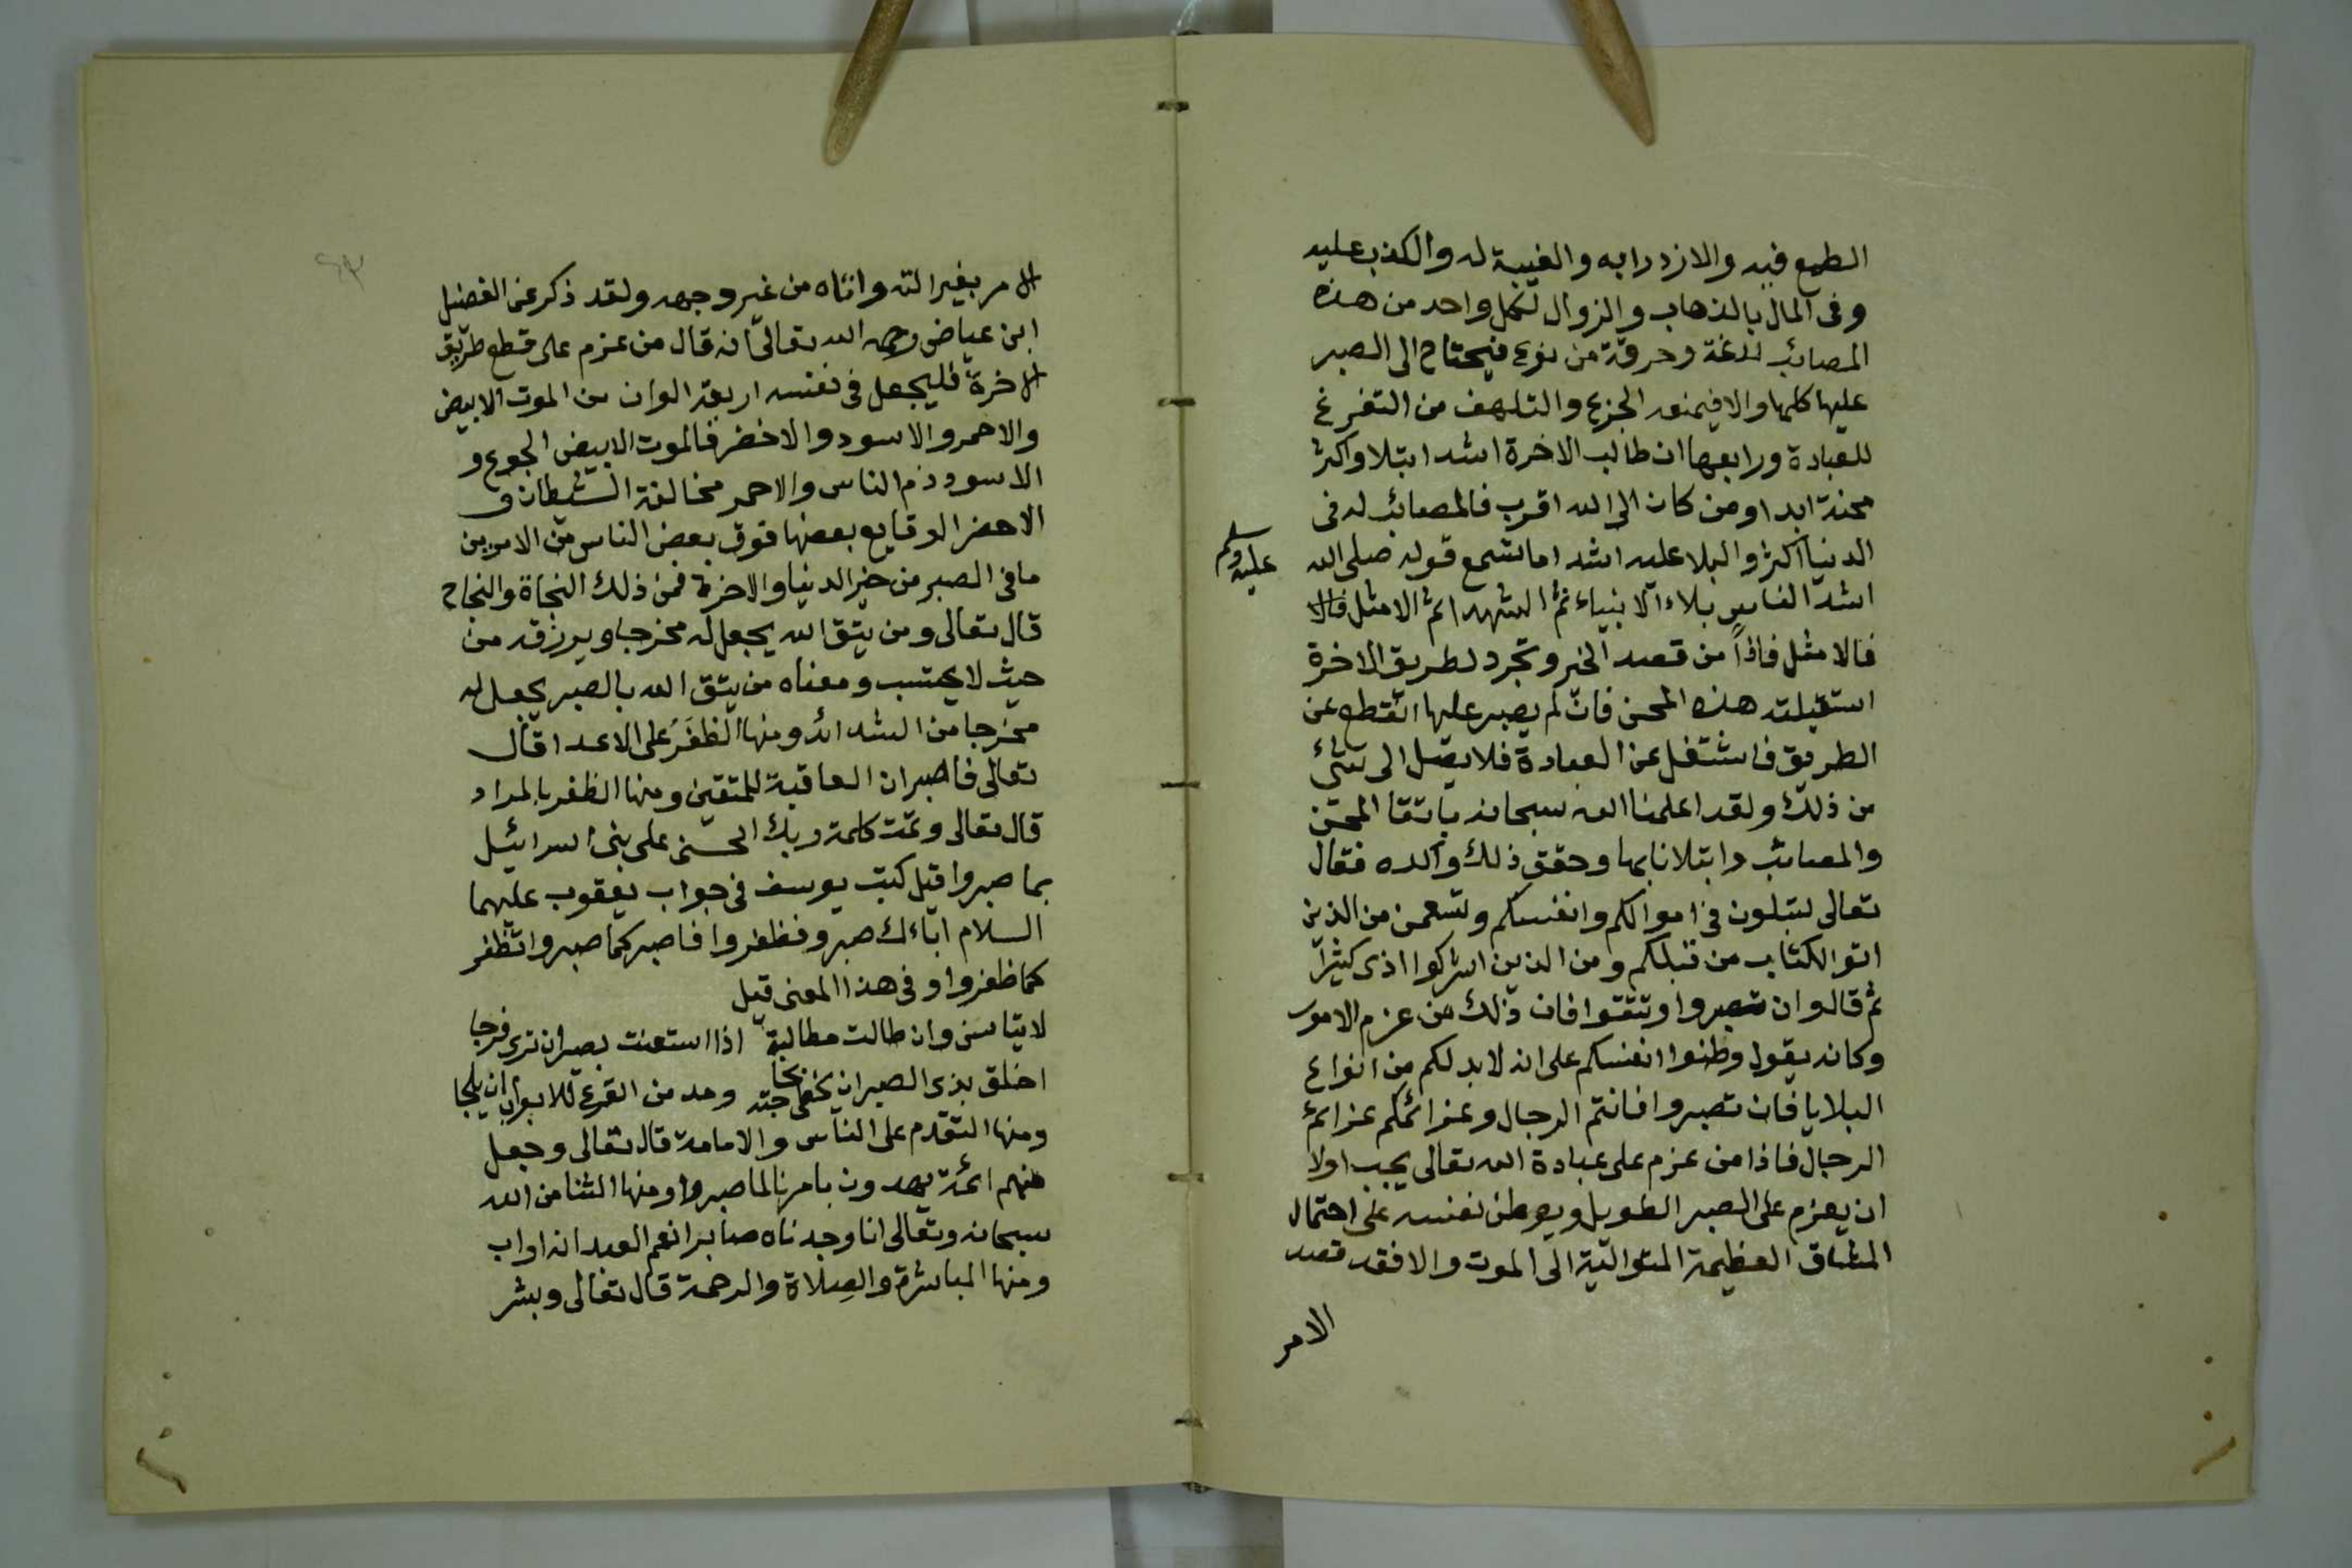 الطمع فيه والازدرا به والغيبة له والكذب عليه
وفى المال بالذهاب والزوال لكل واحد من هذه
المصائب لدغة وحرقة من نوع فيحتاج الى الصبر
عليها كلها والا فيمنعه الجزع والتلهف من التفرغ
للعبادة ورابعها ان طالب الاخرة اشد ابتلا واكثر
محنة ابدا ومن كان الى الله اقرب فالمصائب له فى
الدنيا اكثر والبلا عليه اشد اما تسمع قوله صلى الله
عليه وسلم
اشد الناس بلاء الانبياء ثم الشهدا ثم الامثل فالا
فالامثل فاذاً من قصد الخير وتجرد لطريق الاخرة
استقبلته هذه المحن فان لم يصبر عليها انقطع عن
الطريق فاشتغل عن العبادة فلا يصل الى شئ
من ذلك ولقد اعلمنا الله سبحانه المحن
والمصائب وابتلانا بها وحقق ذلك واكده فقال
تعالى لتبلون فى اموالكم وانفسكم ولتسمعن من الذين
اتو الكتاب من قبلكم ومن الذين اشركوا اذى كثيرا
ثم قال وان تصبروا وتتقوا فان ذلك من عزم الامور
وكانه يقول وطنوا انفسكم على انه لا بد لكم من انواع
البلايا فان تصبروا فانتم الرجال وعزائمكم عزائم
الرجال فاذا من عزم على عبادة الله تعالى يجب اولا
ان يعزم على الصبر الطويل ويوطن نفسه على احتمال
المشاق العظيمة المتوالية الى الموت والا فقد قصد
الامر
٤٣
الامر بغير الته واتاه من غير وجهه ولقد ذكر عن الفضيل
ابن عياض رحمه الله تعالى انه قال من عزم على قطع طريق
الاخرة فليجعل فى نفسه اربعة الوان من الموت الابيض
والاحمر والاسود والاخضر فالموت الابيض الجوع و
الاسود ذم الناس والاحمر مخالفة الشيطان و
الاخضر الوقايع بعضها فوق بعض الناس من الامرين
ما فى الصبر من خير الدنيا والاخرة فمن ذلك النجاة والنجاح
قال تعالى ومن يتق الله يجعل له مخرجا ويرزقه من
حيث لا يحتسب ومعناه من يتق الله بالصبر يجعل له
مخرجا من الشدائد ومنها الظفر على الاعدا قال
تعالى فاصبر ان العاقبة للمتقين ومنها الظفر بالمراد
قال تعالى وتمت كلمة ربك الحسنى على بنى اسرائيل
بما صبروا قيل كتب يوسف فى جواب يعقوب عليهما
السلام اباءك صبروا فظفروا فاصبر كما صبروا تظفر
كما ظفروا وفى هذا المعنى قيل
لا يتاسن وان طالت مطالبة اذا استعنت بصبر ان ترى فرجا
اخلق بذى الصبر ان يحظى بحاجته ومد من القرع للابواب ان يلجا
ومنها التقدم على الناس والامامة قال تعالى وجعل
منهم ائمة يهدون بامرنا لما صبروا ومنها الثنا من الله
سبحانه وتعالى انا وجدناه صابرا نعم العبد انه اواب
ومنها المباشرة والصلاة والرحمة قال تعالى وبشر